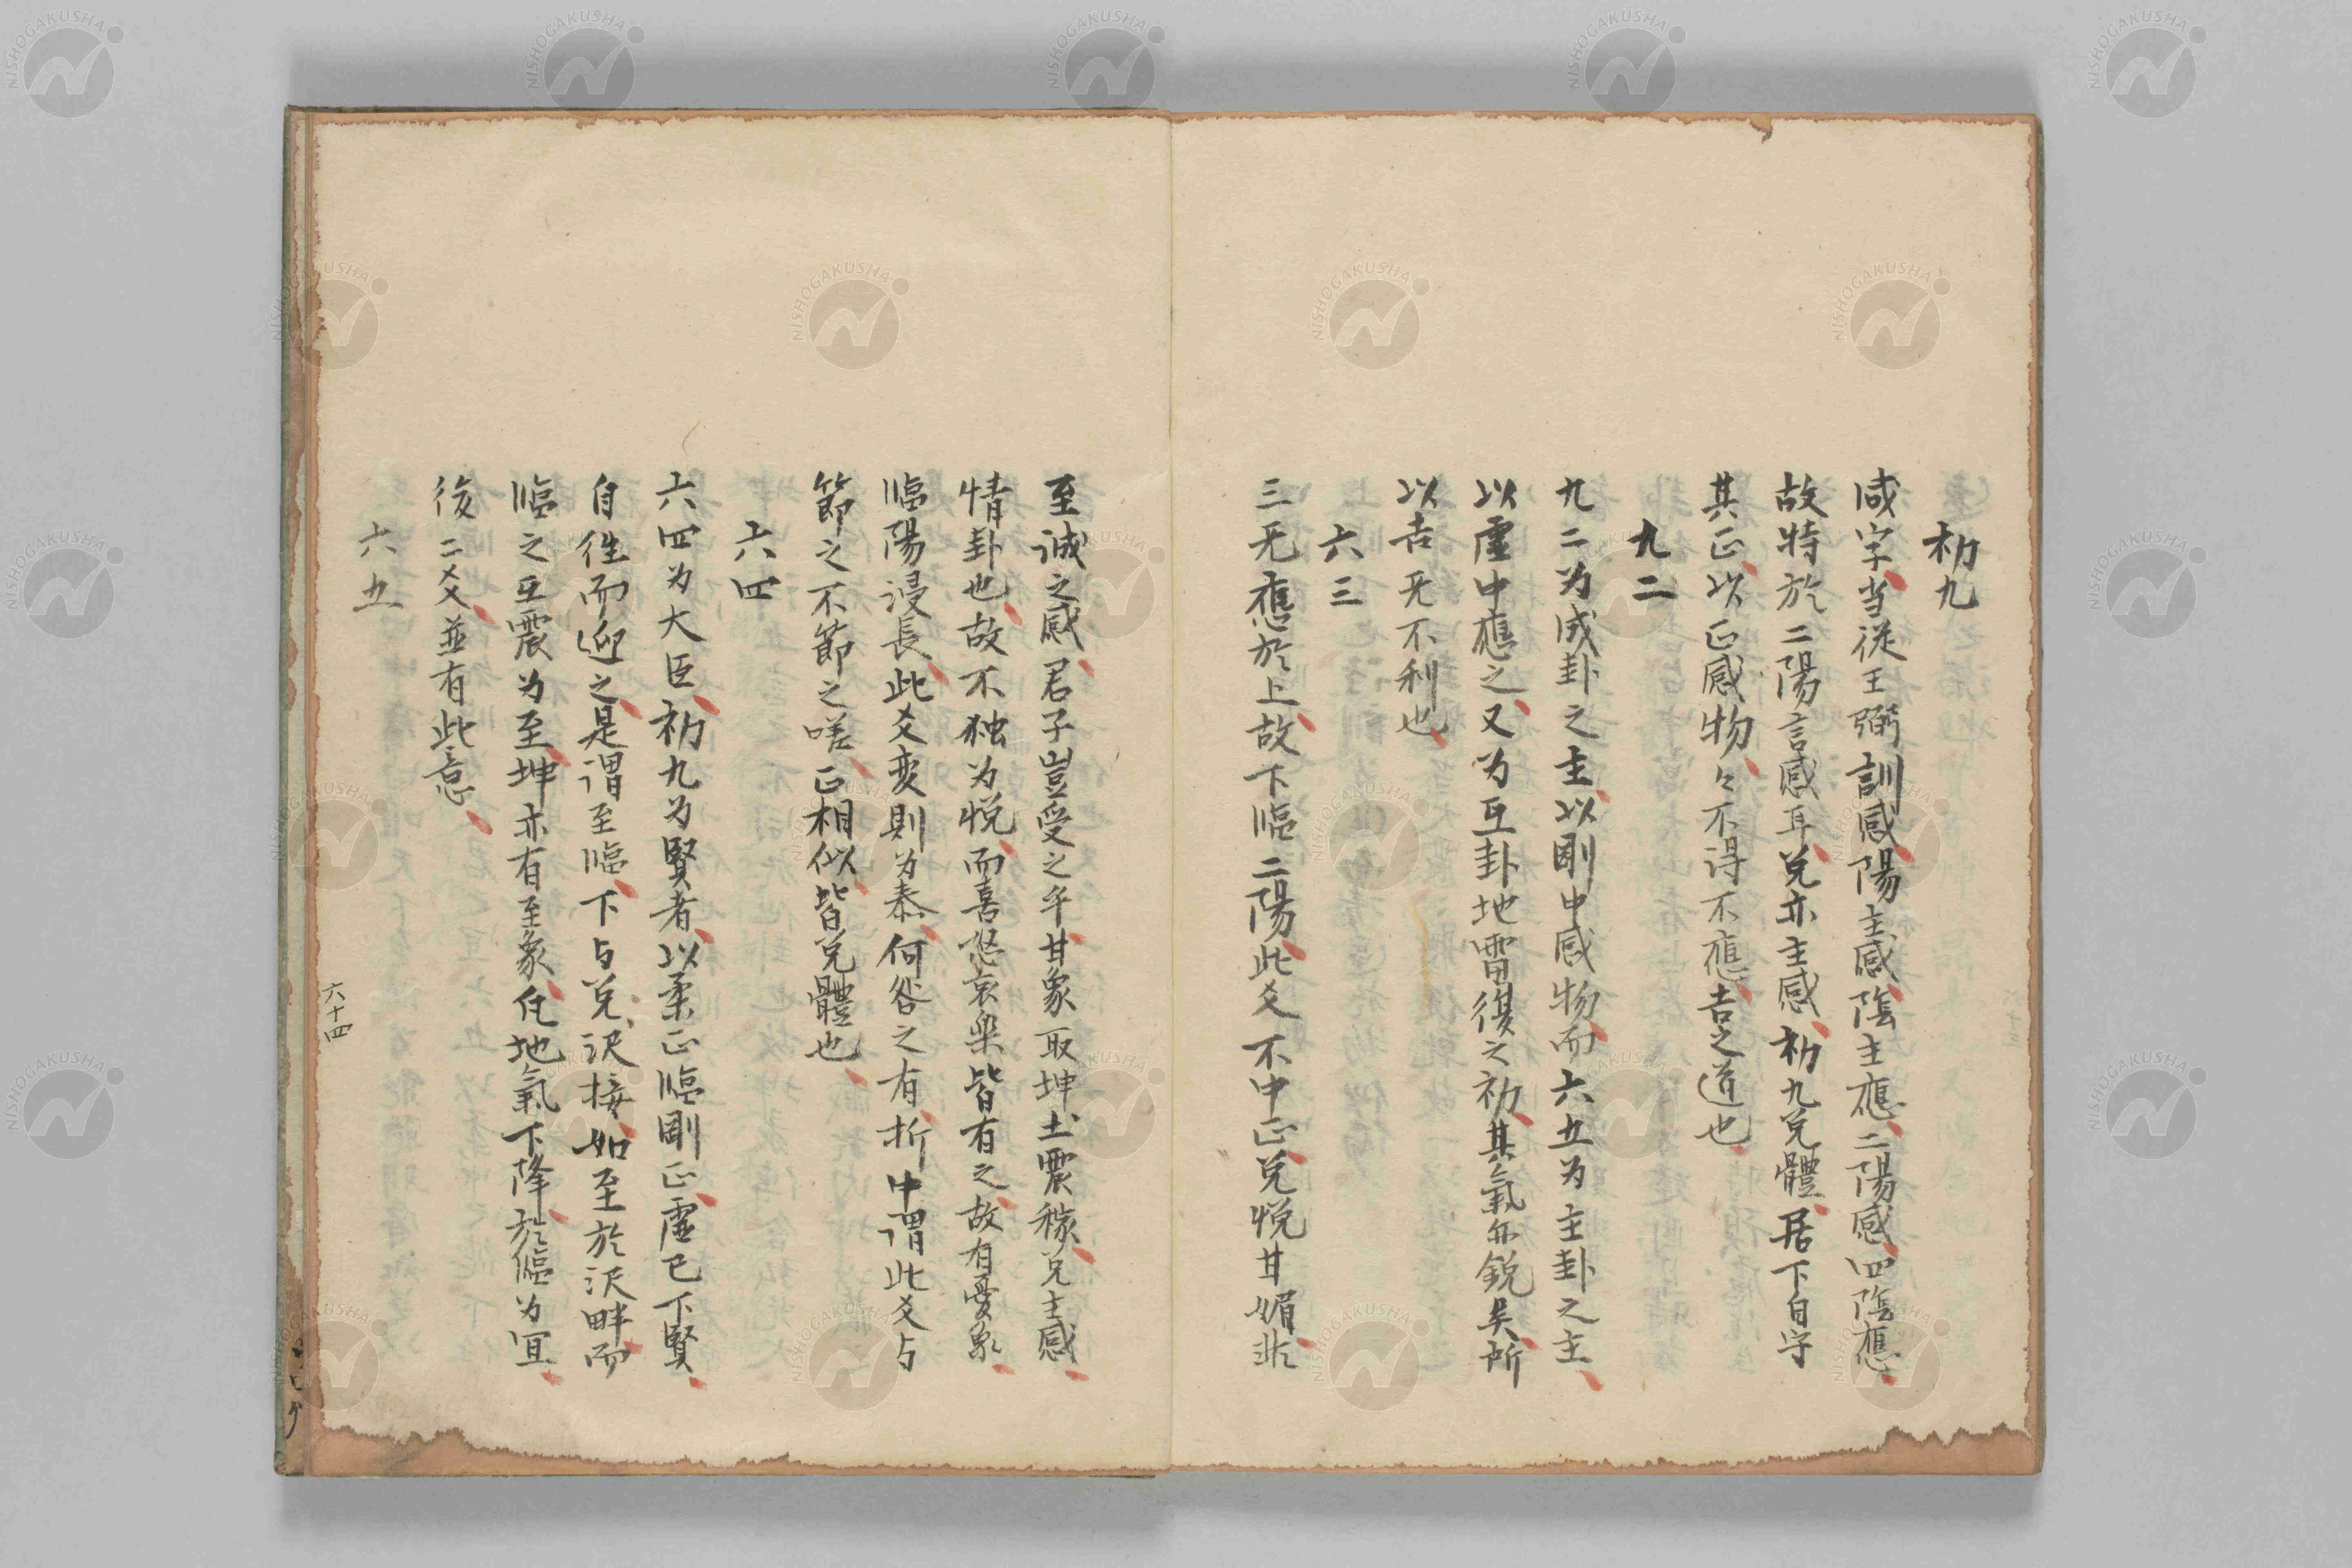 初九
咸字当從王弼訓感陽主感陰主應二陽感四陰應
故特於二陽言感耳兌亦主感初九兌體居下自守
其正以正感物々不得不應吉之道也
九二
九二为成卦之主以剛中感物而六五为主卦之主
以虛中應之又为互卦地雷復之初其氣尓銳吴所
以吉无不利也
六三
三无應於上故下臨二陽此爻不中正兌悦甘媚非
至誠之感君子豈受之乎甘象取坤土震稼兌主感
情卦也故不独为悦而喜怒哀樂皆有之故有憂象
臨陽浸長此爻変則为泰何咎之有折中謂此爻与
節之不節之嗟正相似皆兌體也
六四
六四为大臣初九为賢者以柔正臨剛正虛已下賢
自徃而迎之是謂至臨下与兌沢接如至於沢畔而
臨之互震为至坤亦有至象任地氣下降於臨为宜
後二爻並有此意
六五
六十四
NISHOGAKUSHA